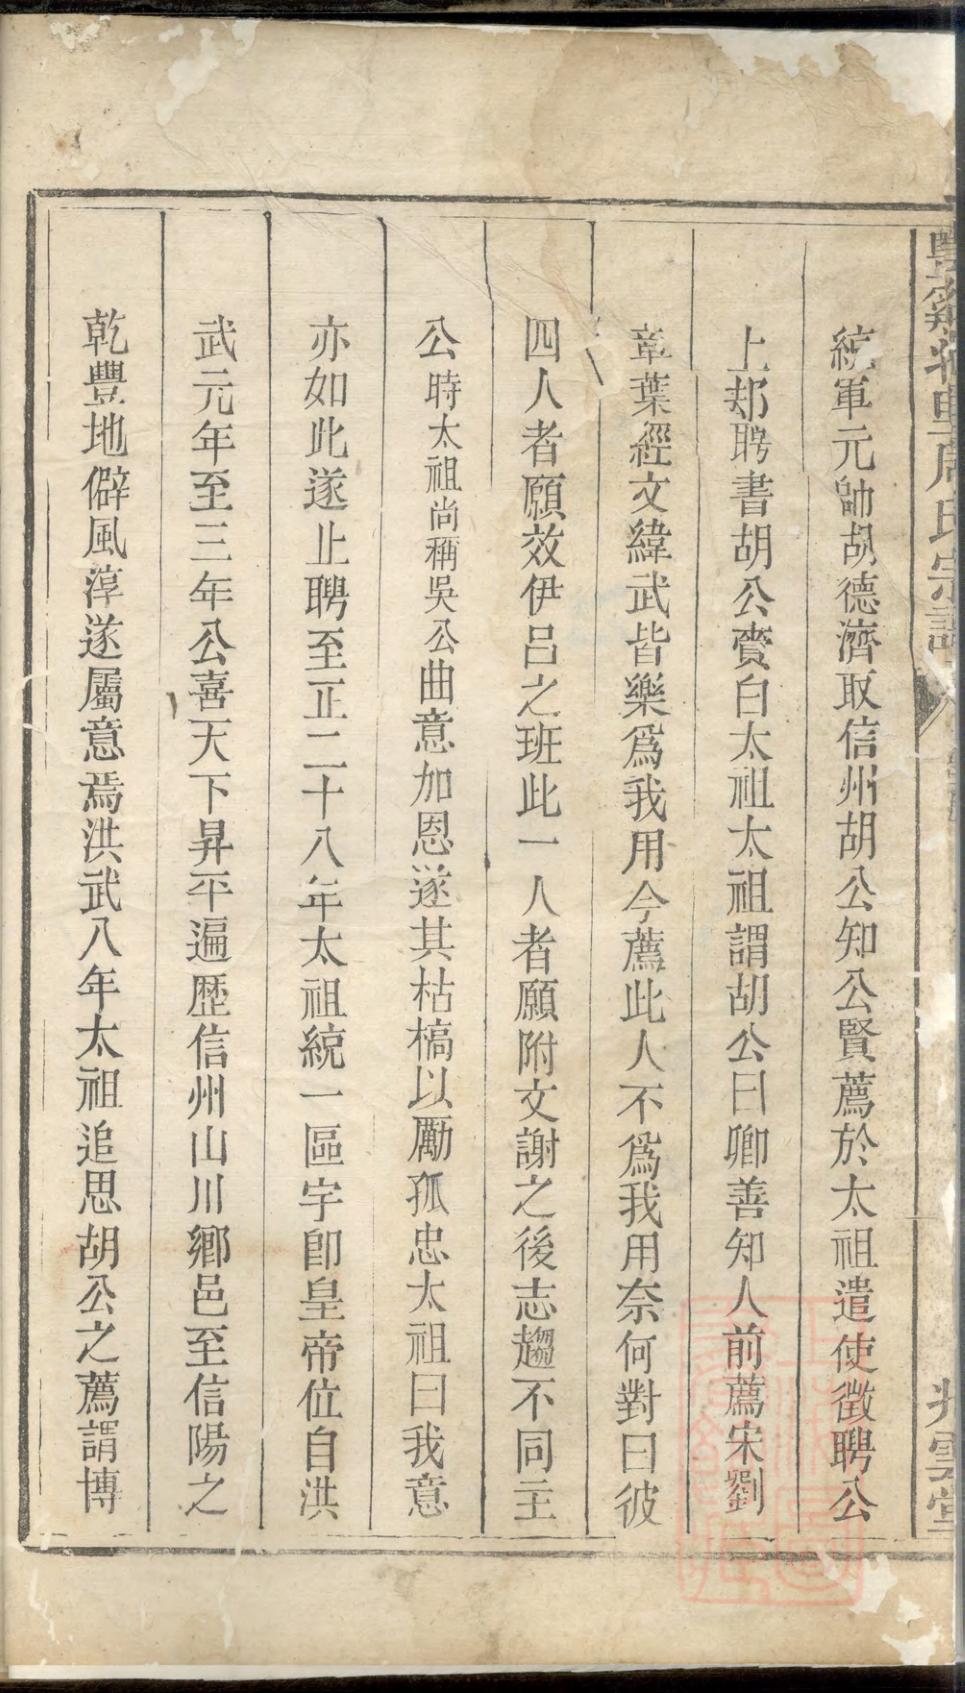 統軍元帥胡德濟取信州胡公知公賢薦於太祖遣使徵聘公
上却聘書胡公賫白太祖太祖謂胡公曰卿善知人前薦宋劉
章葉經文緯武皆樂爲我用今薦此人不爲我用奈何對曰彼
四人者願效伊呂之班此一人者願附文謝之後志趨不同主
公時太祖尚稱吳公曲意加恩遂其枯槁以勵孤忠太祖曰我意
亦如此遂止聘至正二十八年太祖統一區宇卽皇帝位自洪
武元年至三年公喜天下昇平遍歷信州山川鄉邑至信陽之
乾豐地僻風淳遂屬意焉洪武八年太祖追思胡公之薦謂博
周氏宗譜
雲堂